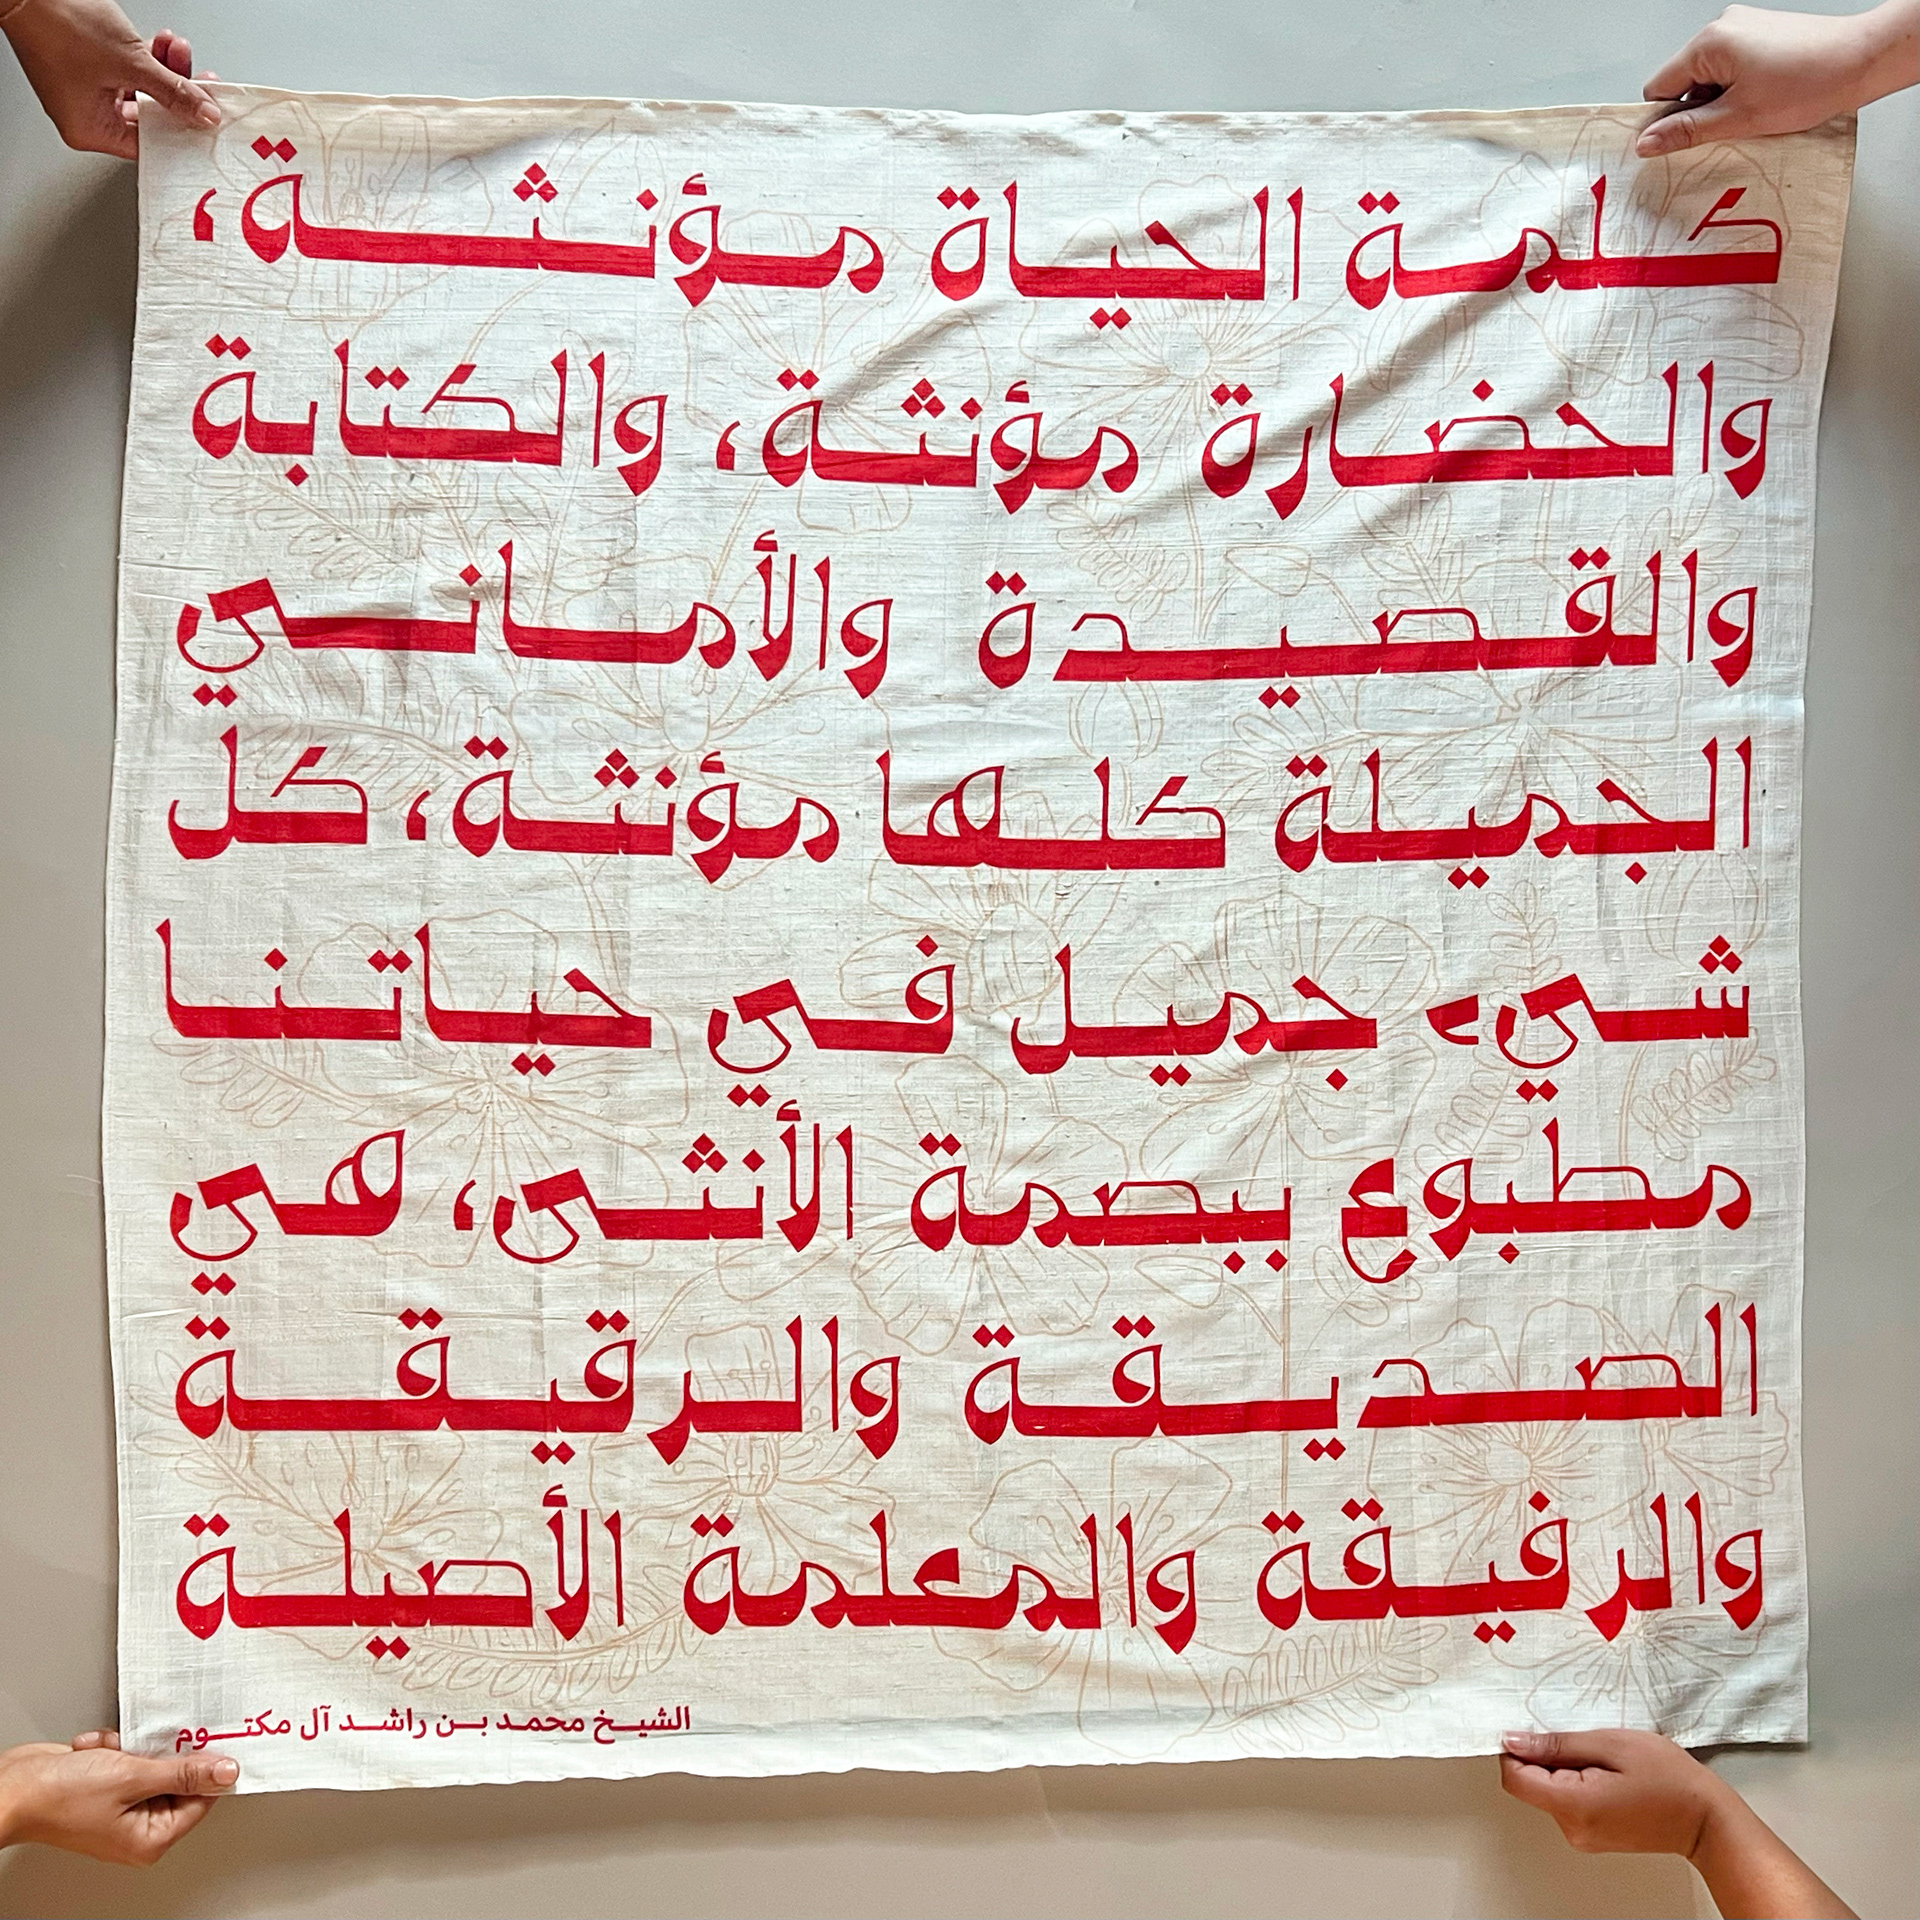 كلمة الحياة مؤنثة،
والحضارة مؤنثة، والكتابة
والقصيدة والأماني
الجميلة كلها مؤنثة، كل
شيء جميل في حياتنا
مطبوع ببصمة الأنثى، هي
الصديقة والرقيقة
والرفيقة والمعلمة الأصيلة
الشيخ محمد بن راشد آل مكتوم